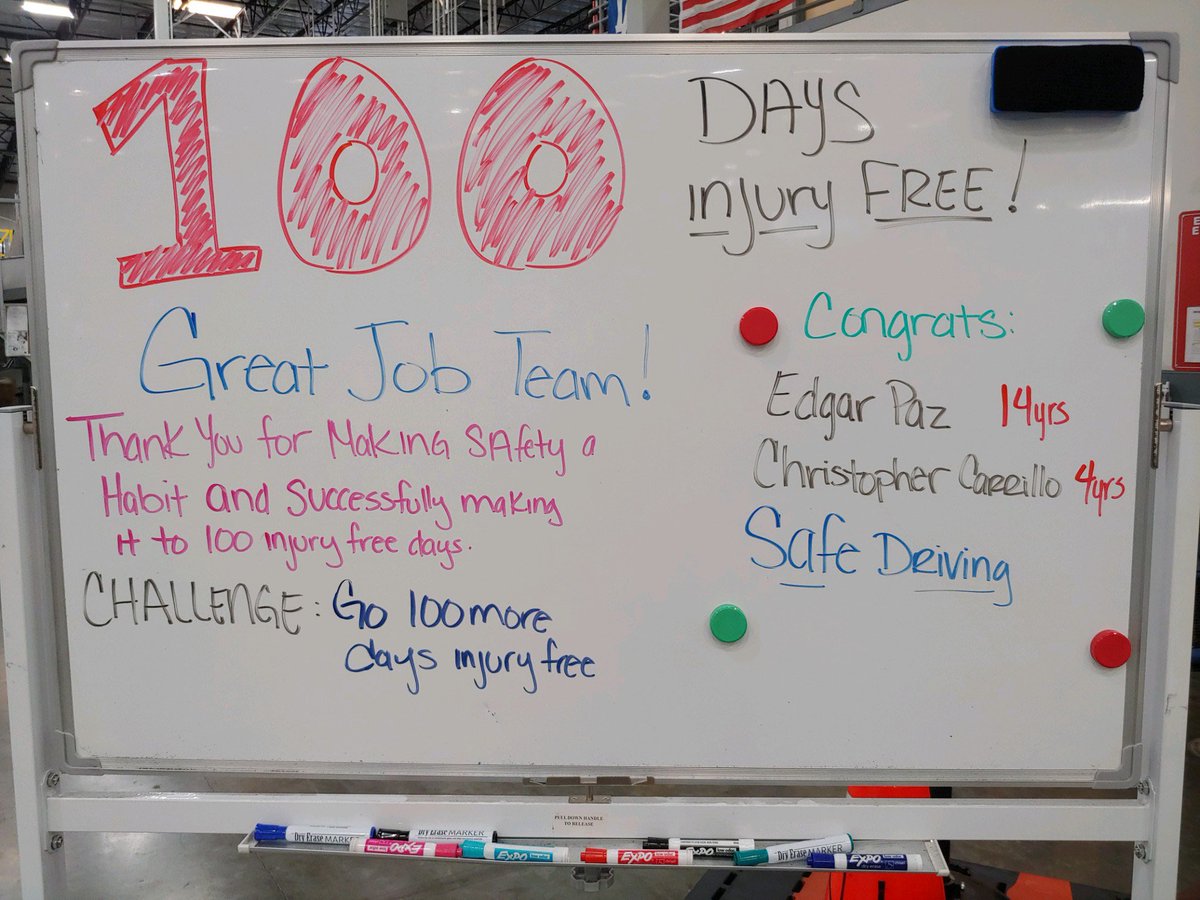 100 DAYS
injury FREE!
Great Job Team!
Thank You for Making SAfety a
Habit and Successfully making
it to 100 injury free days.
CHALLENGE: Go 100 more
days injury free
Congrats:
Edgar Paz 14yrs
Christopher Carrillo 4yrs
Safe Driving
PULL DOWN HANDLE
TO RELEASE
Dry Erase MARKER
Dry Erase MARKER
EXPO
EXPO
EXPO
EXPO
Dry Erase MARKER
EXPO